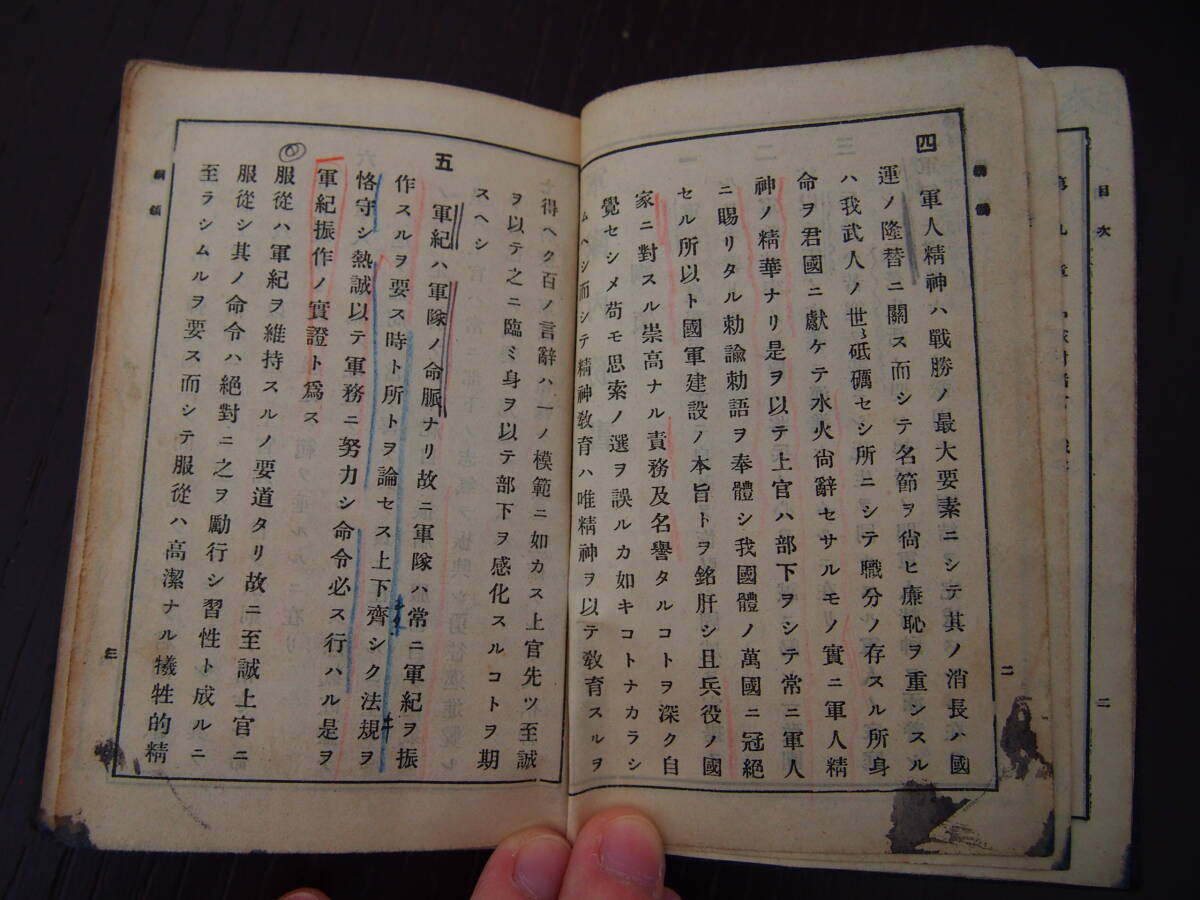 目次
二
綱領
二
四 軍人精神ハ戰勝ノ最大要素ニシテ其ノ消長ハ國
運ノ隆替ニ關ス而シテ名節ヲ尙ヒ廉恥ヲ重ンスル
ハ我武人ノ世〻砥礪セシ所ニシテ職分ノ存スル所身
命ヲ君國ニ獻ケテ水火尙辭セサルモノ實ニ軍人精
神ノ精華ナリ是ヲ以テ上官ハ部下ヲシテ常ニ軍人
ニ賜リタル勅諭勅語ヲ奉體シ我國體ノ萬國ニ冠絕
セル所以ト國軍建設ノ本旨トヲ銘肝シ且兵役ノ國
家ニ對スル崇高ナル責務及名譽タルコトヲ深ク自
覺セシメ苟モ思索ノ選ヲ誤ルカ如キコトナカラシ
ムヘシ而シテ精神敎育ハ唯精神ヲ以テ敎育スルヲ
得ヘク百ノ言辭ハ一ノ模範ニ如カス上官先ツ至誠
ヲ以テ之ニ臨ミ身ヲ以テ部下ヲ感化スルコトヲ期
スヘシ
五 軍紀ハ軍隊ノ命脈ナリ故ニ軍隊ハ常ニ軍紀ヲ振
作スルヲ要ス時ト所トヲ論セス上下齊シク法規ヲ
恪守シ熱誠以テ軍務ニ努力シ命令必ス行ハル是ヲ
軍紀振作ノ實證ト爲ス
服從ハ軍紀ヲ維持スルノ要道タリ故ニ至誠上官ニ
服從シ其ノ命令ハ絕對ニ之ヲ勵行シ習性ト成ルニ
至ラシムルヲ要ス而シテ服從ハ高潔ナル犧牲的精
綱領
三